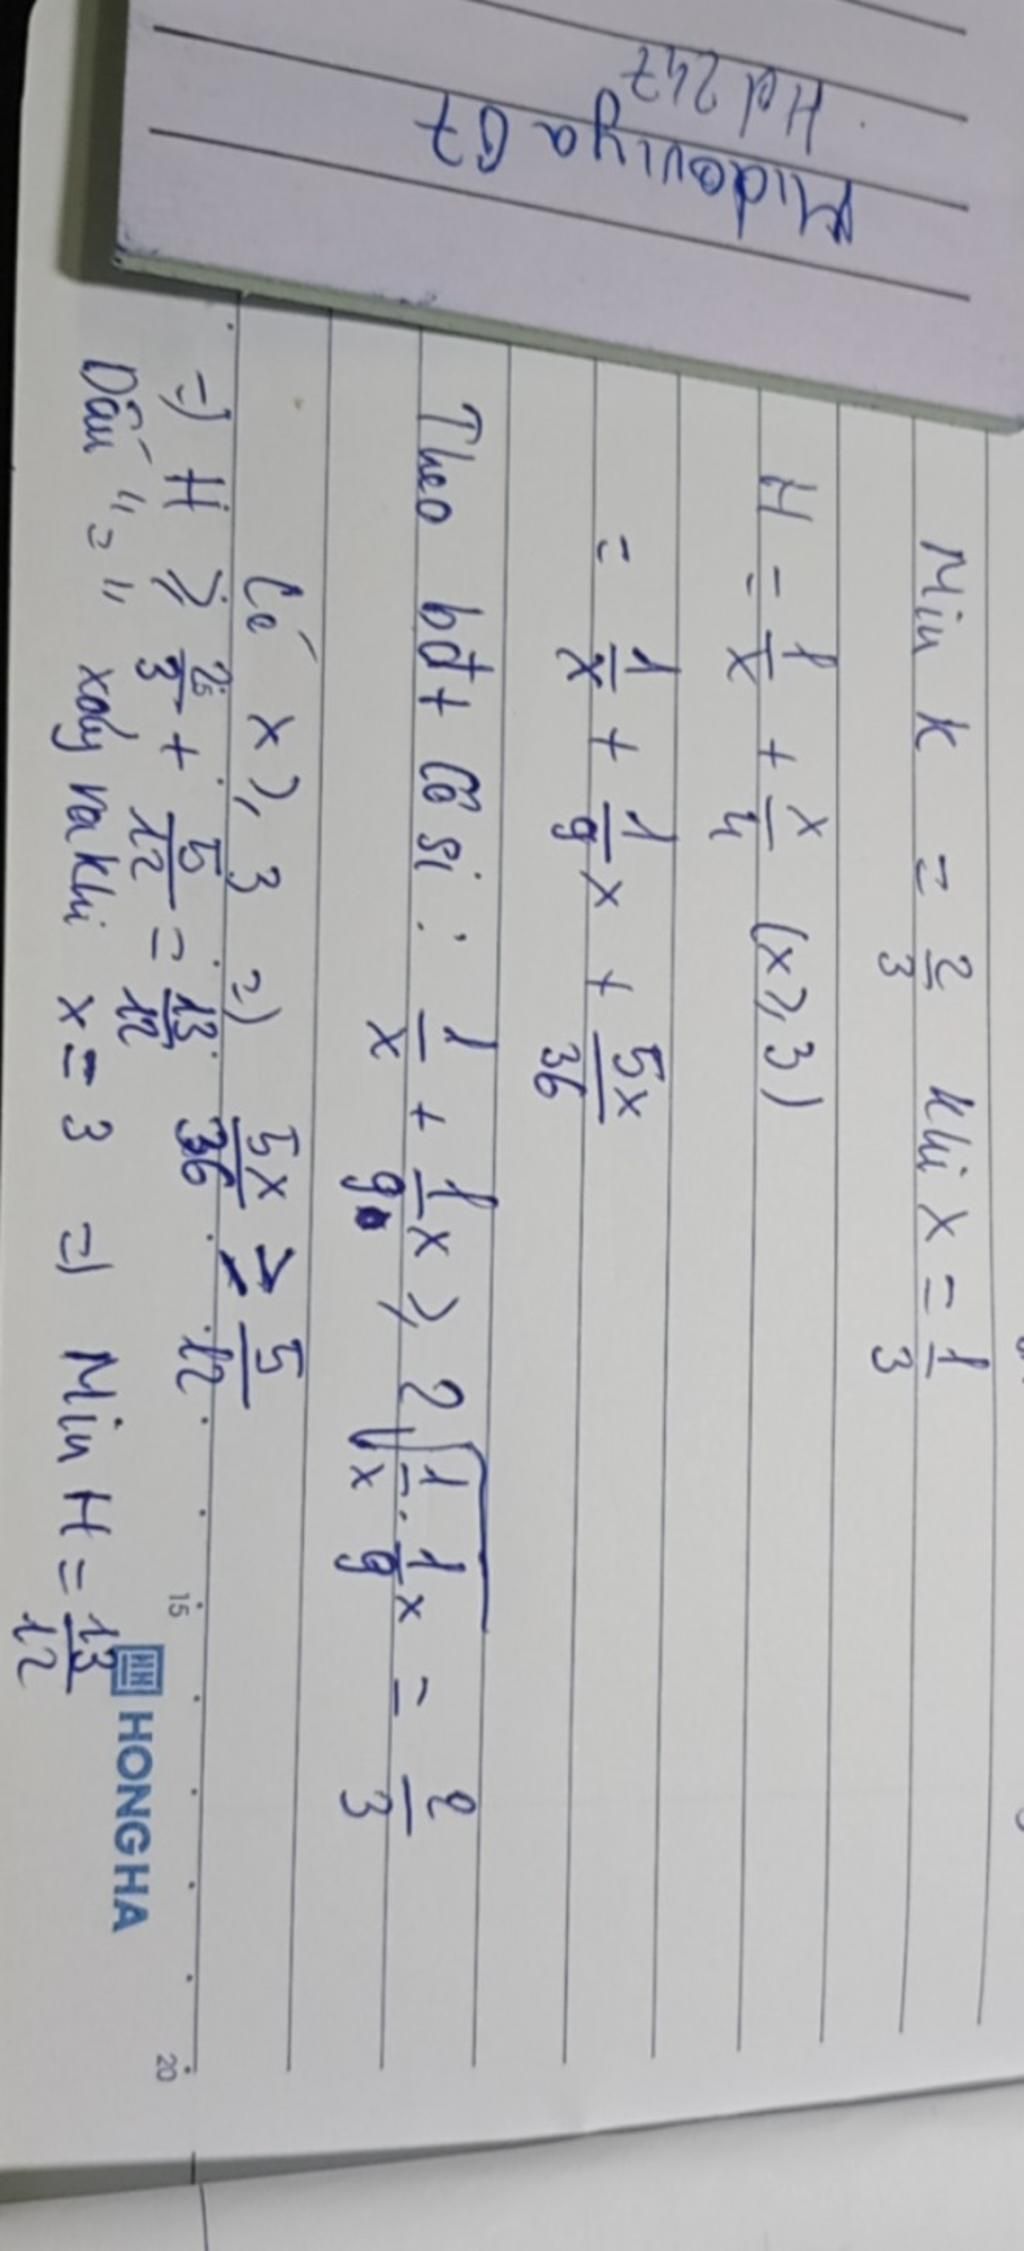 Midoriya67
Hd 247
Min K = 2/3 khi x = 1/3
H = 1/x + x/4 (x ⩾ 3)
= 1/x + 1/9 x + 5x/36
Theo bđt Cô si : 1/x + 1/9 x ⩾ 2√(1/x · 1/9 x) = 2/3
Có x ⩾ 3 => 5x/36 ⩾ 5/12
=> H ⩾ 2/3 + 5/12 = 13/12
Dấu "=" xảy ra khi x = 3 => Min H = 13/12
15
20
HH HONG HA